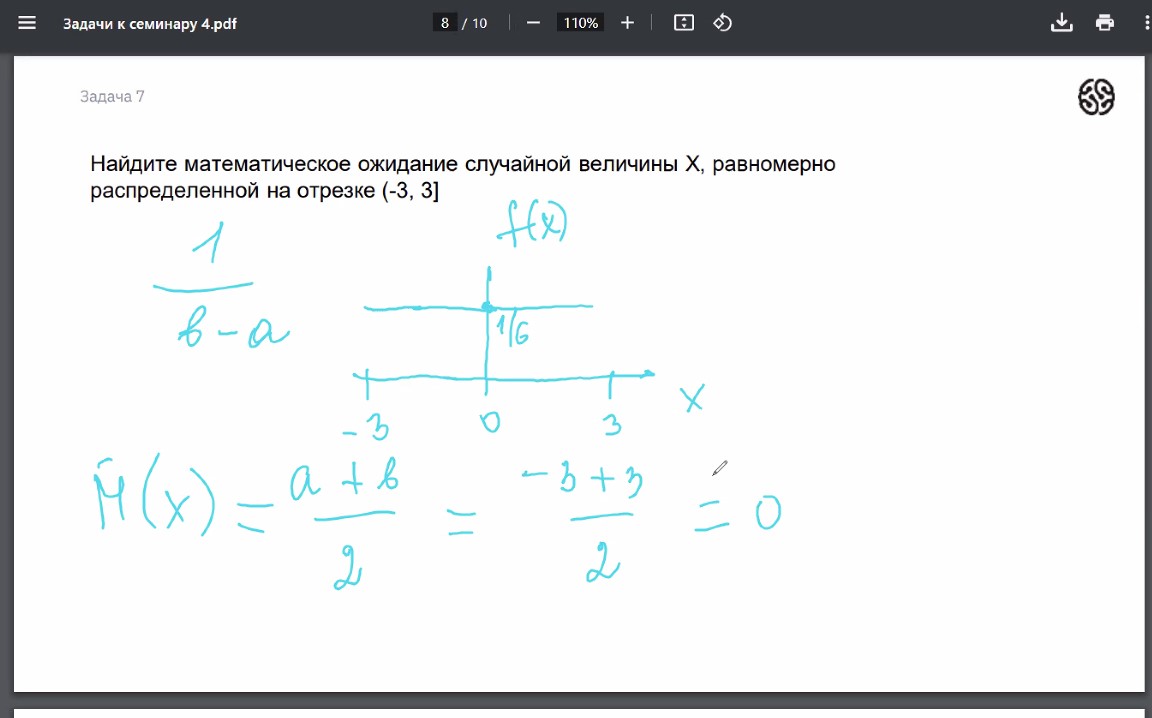 Задачи к семинару 4.pdf
8 / 10
110%
Задача 7
Найдите математическое ожидание случайной величины X, равномерно
распределенной на отрезке (-3, 3]
f(x)
1
в - а
1/6
-3 0 3 x
M(x) = а + в / 2 = -3 + 3 / 2 = 0